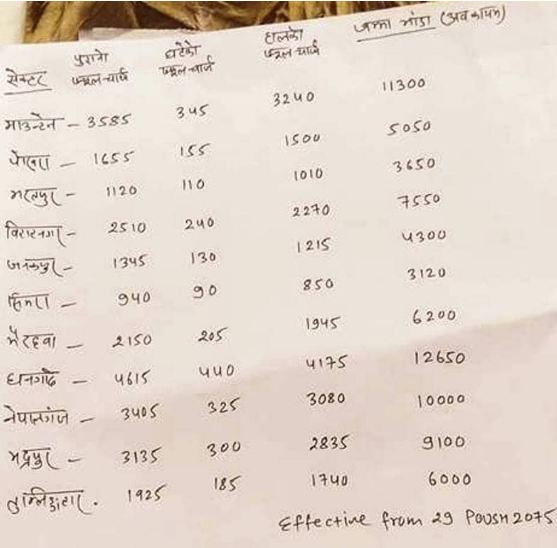 सेक्टर पुरानो फ्यूल चार्ज घटेको फ्यूल चार्ज हालको फ्यूल चार्ज जम्मा भाडा (अब कायम)
माउन्टेन - 3585 345 3240 11300
पोखरा - 1655 155 1500 5050
भरतपुर - 1120 110 1010 3650
विराटनगर - 2510 240 2270 7550
जनकपुर - 1345 130 1215 4300
सिमरा - 940 90 850 3120
भैरहवा - 2150 205 1945 6200
धनगढि - 4615 440 4175 12650
नेपालगंज - 3405 325 3080 10000
भद्रपुर - 3135 300 2835 9100
तुम्लिङटार - 1925 185 1740 6000
Effective from 29 Poush 2075